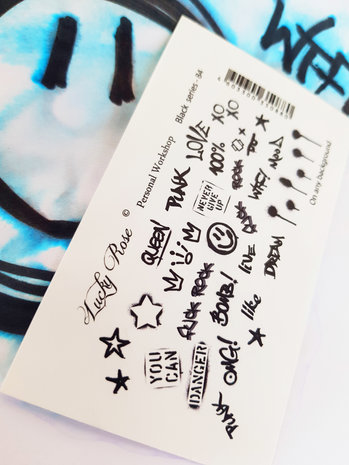 Lucky Rose © Personal Workshop
Black series - 34
On any background
QUEEN
PUNK
XO
XO
100%
NEVER
GIVE
UP
ROCK
WTF?
FUCK ROCK
BOMB!
LIVE
DREAM
like
YOU
CAN
DANGER
OMG!